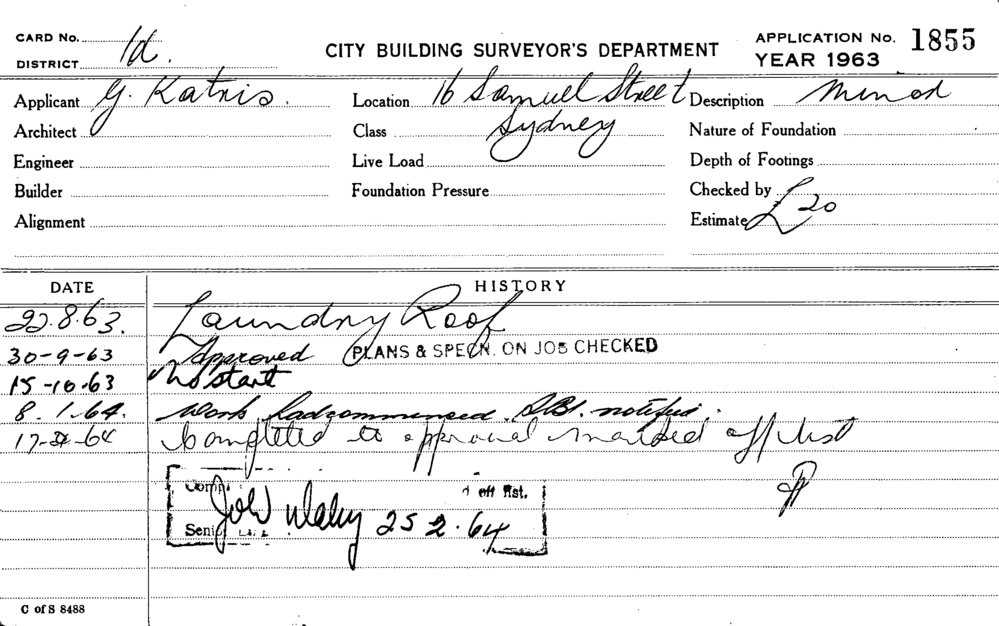 CARD No.
DISTRICT 1d.
CITY BUILDING SURVEYOR'S DEPARTMENT
APPLICATION No. 1855
YEAR 1963
Applicant G. Katris. Location 16 Samuel Street Description Minor
Architect Class Sydney Nature of Foundation
Engineer Live Load Depth of Footings
Builder Foundation Pressure Checked by
Alignment Estimate £20
DATE HISTORY
22.8.63. Laundry Roof
30-9-63 Approved PLANS & SPECN. ON JOB CHECKED
15-10-63 No start
8.1.64. Work had commenced. notified.
17-2-64 Completed to approval marked off list
off list.
25 2.64
C of S 8488